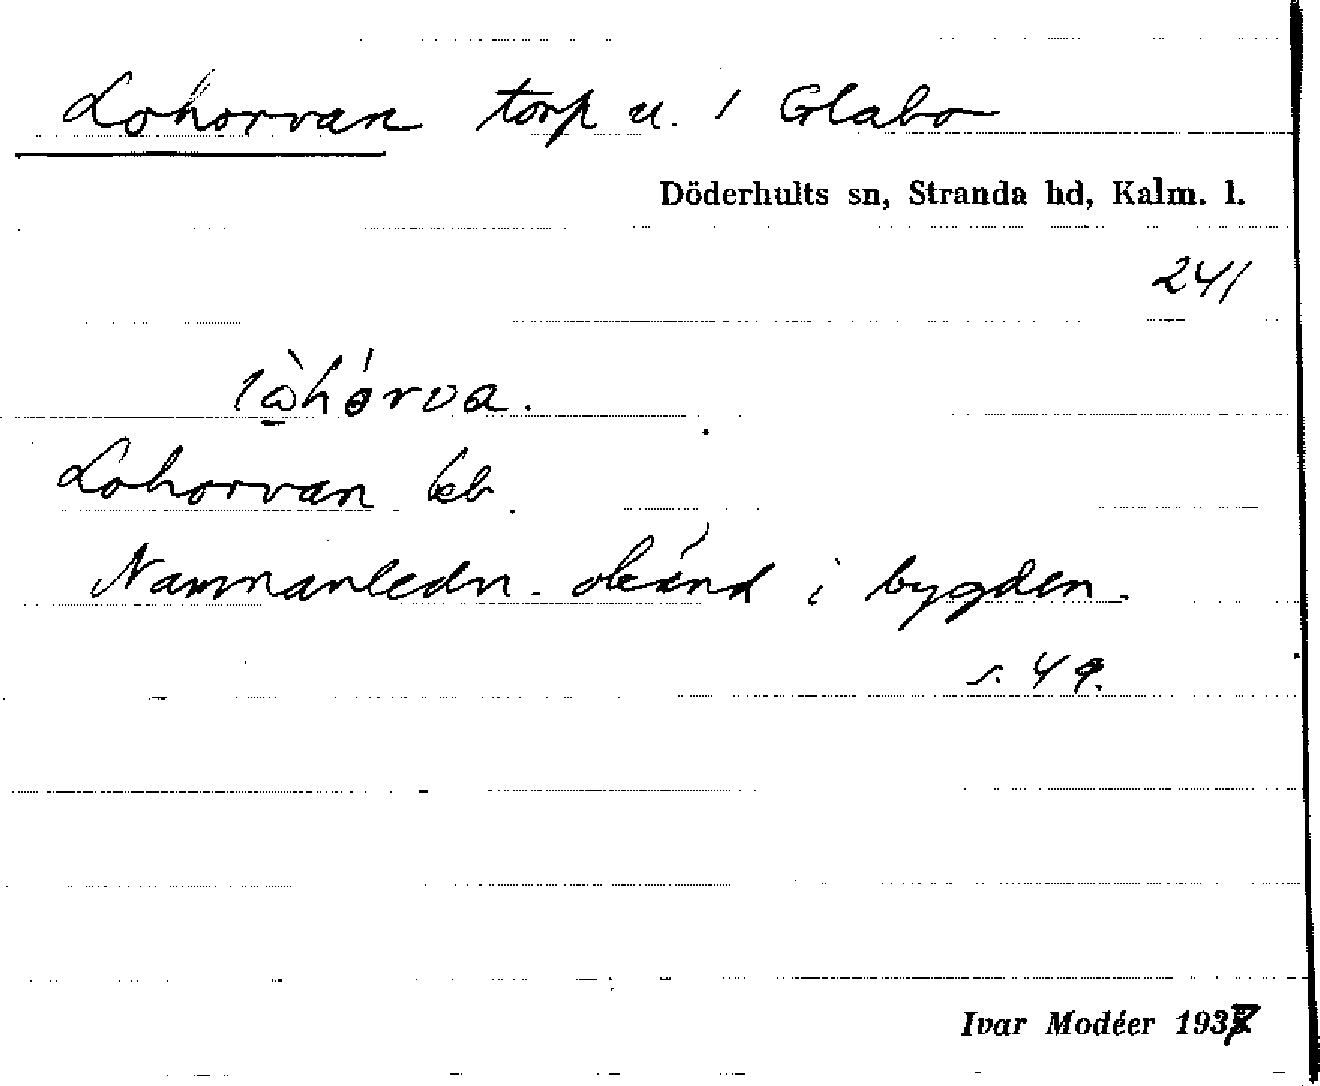 Lohorvan torp u. 1 Glabo
Döderhults sn, Stranda hd, Kalm. l.
241
Lohorvan
Namnanledn. okänd i bygden.
s. 49.
Ivar Modéer 1937